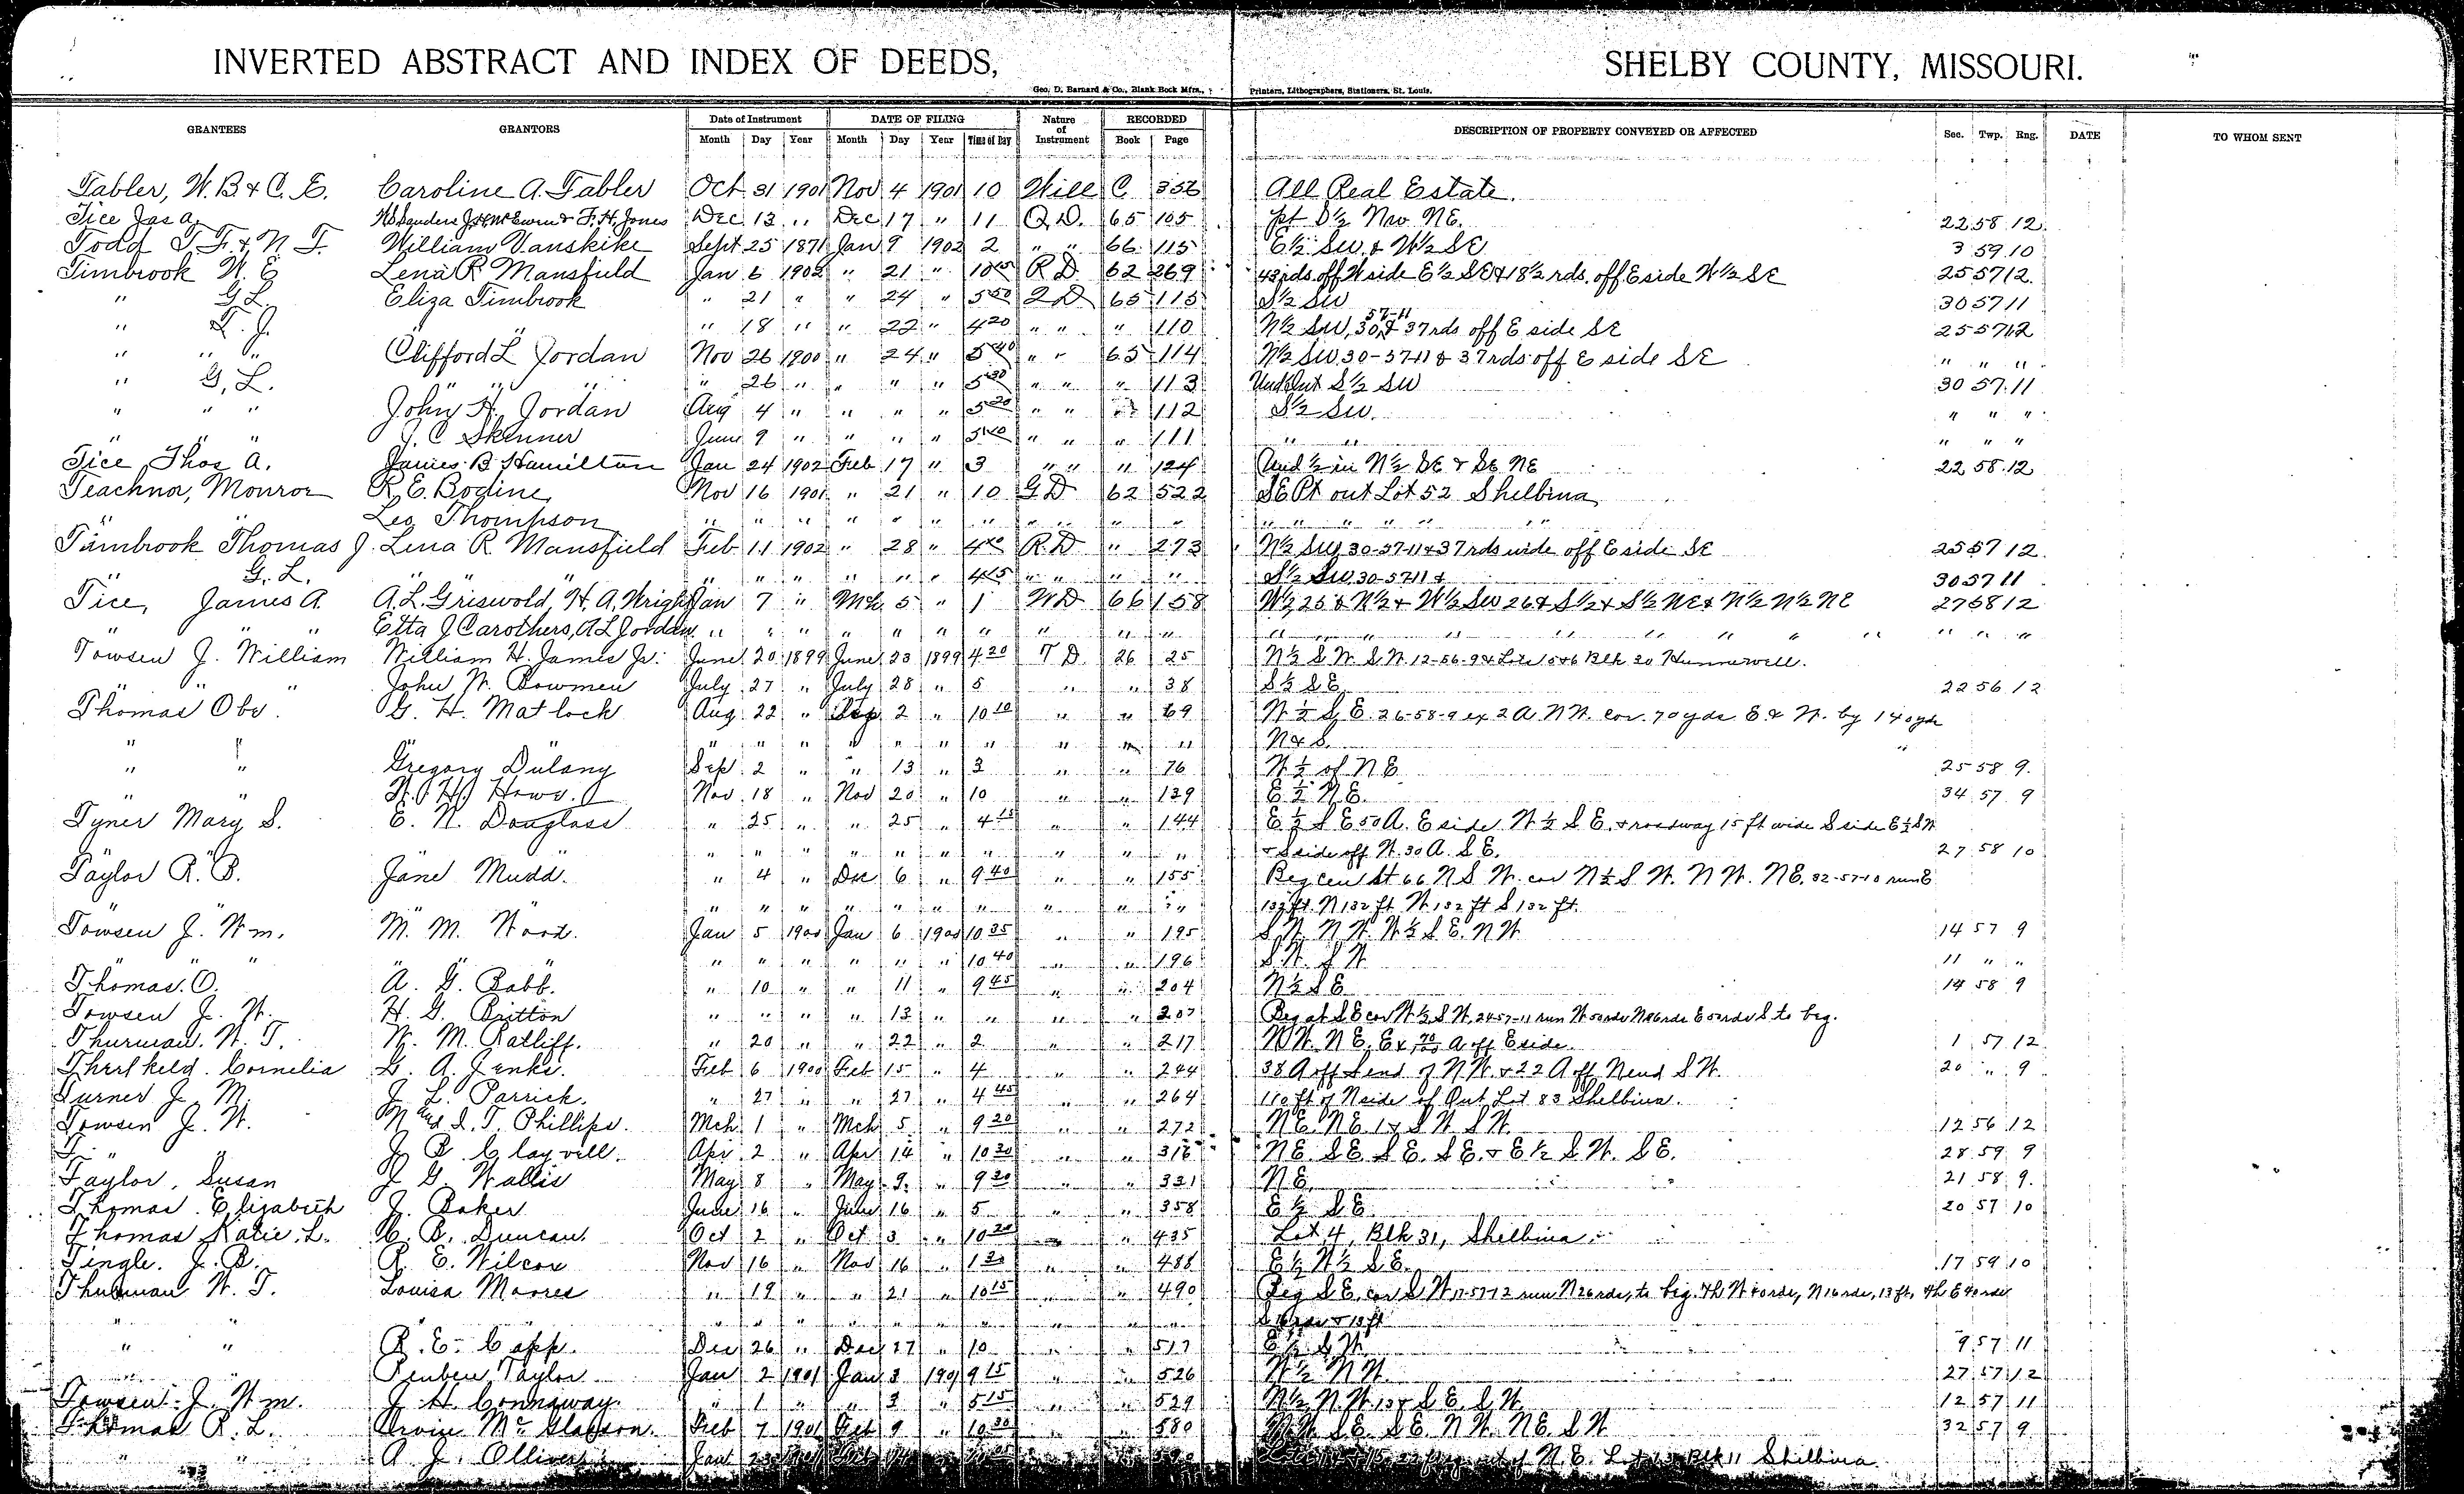 INVERTED ABSTRACT AND INDEX OF DEEDS, SHELBY COUNTY, MISSOURI.
Geo. D. Barnard & Co., Blank Book Mfrs., Printers, Lithographers, Stationers, St. Louis.
GRANTEES GRANTORS Date of Instrument DATE OF FILING Nature of Instrument RECORDED DESCRIPTION OF PROPERTY CONVEYED OR AFFECTED Sec. Twp. Rng. DATE TO WHOM SENT
Month Day Year Month Day Year Time of Day Book Page
Tabler, W. B & C. E. Caroline A. Tabler Oct 31 1901 Nov 4 1901 10 Will C 356 All Real Estate.
Tice Jas a. Jones Dec 13 " Dec 17 " 11 Q.D. 65 105 pt S½ Nw NE. 22 58 12
Todd T. F. & N. T. William Vanskike Sept 25 1871 Jan 9 1902 2 " " 66 115 E½ SW. & W½ SE 3 59 10
Timbrook W. E Lena R Mansfield Jan 6 1902 " 21 " 10 R D 62 269 43 rds. off W side E½ SE & 18½ rds. off E side W½ SE 25 57 12
" G L. Eliza Timbrook " 21 " " 24 " 5 50 Q D 65 115 S½ SW 30 57 11
" T. J. " 18 " " 22 " 4 20 " " " 110 N½ SW, 30 57-11 & 37 rds off E side SE 25 57 12
" " " Clifford L Jordan Nov 26 1900 " 24 " 5 40 " " 65 114 N½ SW 30-57-11 & 37 rds off E side SE " " "
" G, L. " 26 " " " " 5 30 " " " 113 S½ SW 30 57 11
" " " John H. Jordan Aug 4 " " " " 5 20 " " " 112 S½ SW. " " "
" " " J. C Skinner June 9 " " " " 5 10 " " " 111 " " " " "
Tice Thos A. James B Hamilton Jan 24 1902 Feb 17 " 3 " " " 124 Und ½ in N½ SE & SE NE 22 58 12
Teachnor, Monroe R. E. Bodine Nov 16 1901 " 21 " 10 G D 62 522 SE Pt out Lot 52 Shelbina
" Leo Thompson " " " " " " " " " " " " " "
Timbrook Thomas J. Lena R Mansfield Feb 11 1902 " 28 " 4 R. D " 273 N½ SW 30-57-11 & 37 rds wide off E side SE 25 57 12
" G. L. " " " " " " " 4 15 " " " " S½ SW 30-57-11 & 30 57 11
Tice, James A. A. L. Griswold, H. A. Wright Jan 7 " Mch 5 " 1 W D 66 158 W½ 25 & N½ & W½ SW 26 & S½ & S½ NE & N½ N½ NE 27 58 12
" " Etta J Carothers, A L Jordan " " " " " " " " " " " " " "
Towsen J. William William H. James Jr. June 20 1899 June 23 1899 4 20 T D. 26 25 N½ S W. S W. 12-56-9 & Lots 5 & 6 Blk 20 Hunnewell.
" " John W. Bowmen July 27 " July 28 " 5 " " 38 S½ S E. 22 56 12
Thomas Obe. G. H. Matlock Aug 22 " Sep 2 " 10 10 " " 69 W ½ S. E. 26-58-9 ex 2 A N W. cor. 70 yds E & W. by 140 yds
" " " " " " " " " " " " N & S.
" " Gregory Dulany Sep 2 " " 13 " 3 " " 76 W ½ of N E. 25 58 9
" " Nov 18 " Nov 20 " 10 " " 139 E ½ N E. 34 57 9
Tyner Mary S. E. N. Douglass " 25 " " 25 " 4 15 " " 144 E ½ S E 50 A. E side W ½ S E. & roadway 15 ft wide S side E ½ S W
" " " " " " " " " " " " & S side off W. 30 A. S E. 27 58 10
Taylor R. B. Jane Mudd. " 4 " Dec 6 " 9 40 " " 155 Beg 66 N S W. cor N½ S W. N W. N E. 32-57-10 run E
" " " " " " " " " " " 132 ft. N 132 ft W. 132 ft S 132 ft.
Towsen J. Wm. M. M. Wood. Jan 5 1900 Jan 6 1900 10 35 " " 195 S W. N W. W ½ S E. N W. 14 57 9
" " " " " " " " " 10 40 " " 196 S. W. S W. 11 " "
Thomas. O. A. G. Babb. " 10 " " 11 " 9 45 " " 204 N½ S E 14 58 9
Towsen J. W. H. G. Britton " " " " 13 " " " " 207 Beg at S E cor W ½ S W. 24 57-11 run W 50 rds N 16 rds E 50 rds S to beg.
Thurman. W. T. W. M. Ratliff. " 20 " " 22 " 2 " " 217 N W. N E. Ex A off E side. 1 57 12
Therlkeld. Cornelia G. A. Jenks. Feb 6 1900 Feb 15 " 4 " " 244 38 A off S end of N W. & 22 A off N end S W. 20 " 9
Turner J. M. J. L. Parrick. " 27 " " 27 " 4 45 " " 264 110 ft of N side of Out Lot 83 Shelbina.
Towsen J. W. S. T. Phillips. Mch 1 " Mch 5 " 9 20 " " 272 N E. N E. 14 S W. S W. 12 56 12
" J B. Clayvill. Apr 2 " Apr 14 " 10 30 " " 316 N E. S E. S E. S E. & E ½ S W. S E. 28 59 9
Taylor, Susan J G. Wallis May 8 " May 9. " 9 20 " " 321 N E. 21 58 9.
Thomas. Elizabeth J. Baker June 16 " June 16 " 5 " " 358 E ½ S E. 20 57 10
Thomas Katie. L. C. B. Duncan. Oct 2 " Oct 3 " 10 20 " " 435 Lot 4, Blk 31, Shelbina
Tingle. J. B. R. E. Wilcox Nov 16 " Nov 16 " 1 30 " " 488 E ½ W ½ S E. 17 59 10
Thurman W. T. Louisa Moores " 19 " " 21 " 10 15 " " 490 Beg S E. cor S W 17-57-12 run N 26 rds, to beg. th W 40 rds, N 16 rds, 13 ft, th E 40 rds
" " " " " " " " " " " & 13 ft
" " R. E. Capp. Dec 26 " Dec 27 " 10 " " 517 E ½ S W. 9 57 11
" " Reuben Taylor Jan 2 1901 Jan 3 1901 9 15 " " 526 W ½ N W. 27 57 12
Towsen. J. Wm. J H Connaway " 1 " " 3 " 5 15 " " 529 N½ N W 13 & S E. S W. 12 57 11
Thomas R. L. Feb 7 1901 Feb 9 " 10 30 " " 580 N W. S E. S E. N W. N E. S W 32 57 9
" " A. J. Olliver Jan 23 590 of N. E. Blk 11 Shelbina